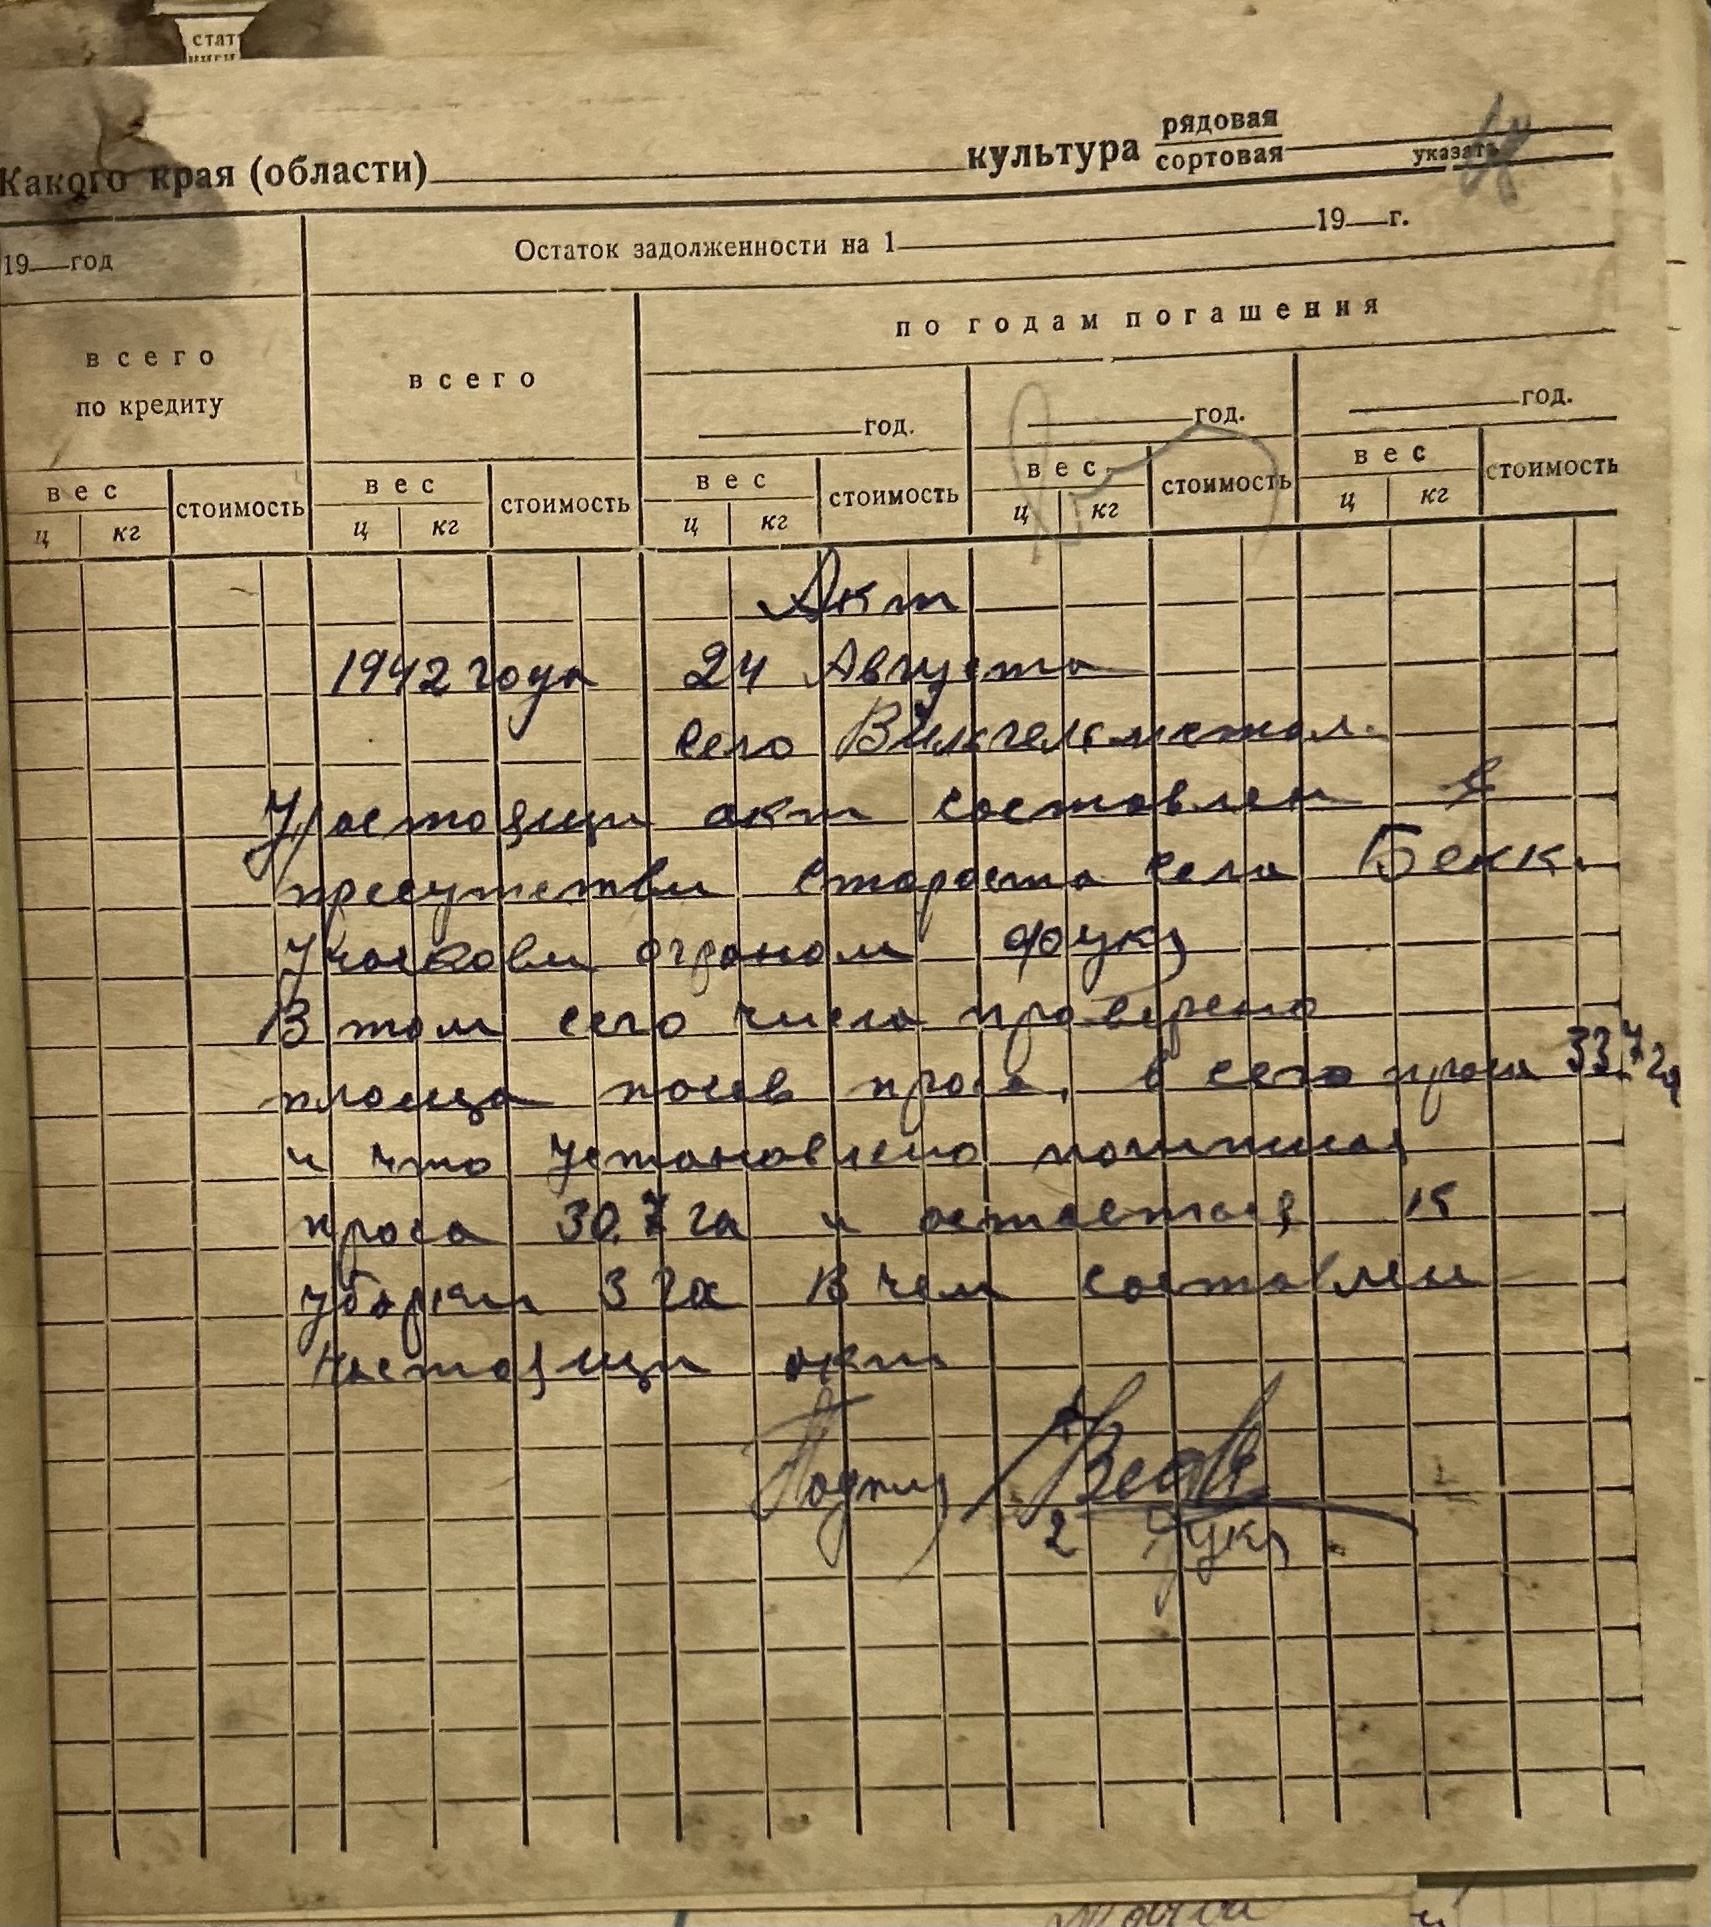 стат
Какого края (области) культура рядовая
сортовая указать
19 год Остаток задолженности на 1 19 г.
всего по кредиту всего по годам погашения
год. год. год.
вес стоимость вес стоимость вес стоимость вес стоимость вес стоимость
ц кг ц кг ц кг ц кг ц кг
Акт
1942 года 24 Августа
село
акт составлен в
пресутстви староста села Бекк.
Участкови агроном Фукс
В том сего числа проверено
площа посев проса, всего проса 33.7 га
и что установлено
проса 30.7 га и остается к
уборки 3 га В чем составлен
настоящи акт
Подпись
2 Фукс